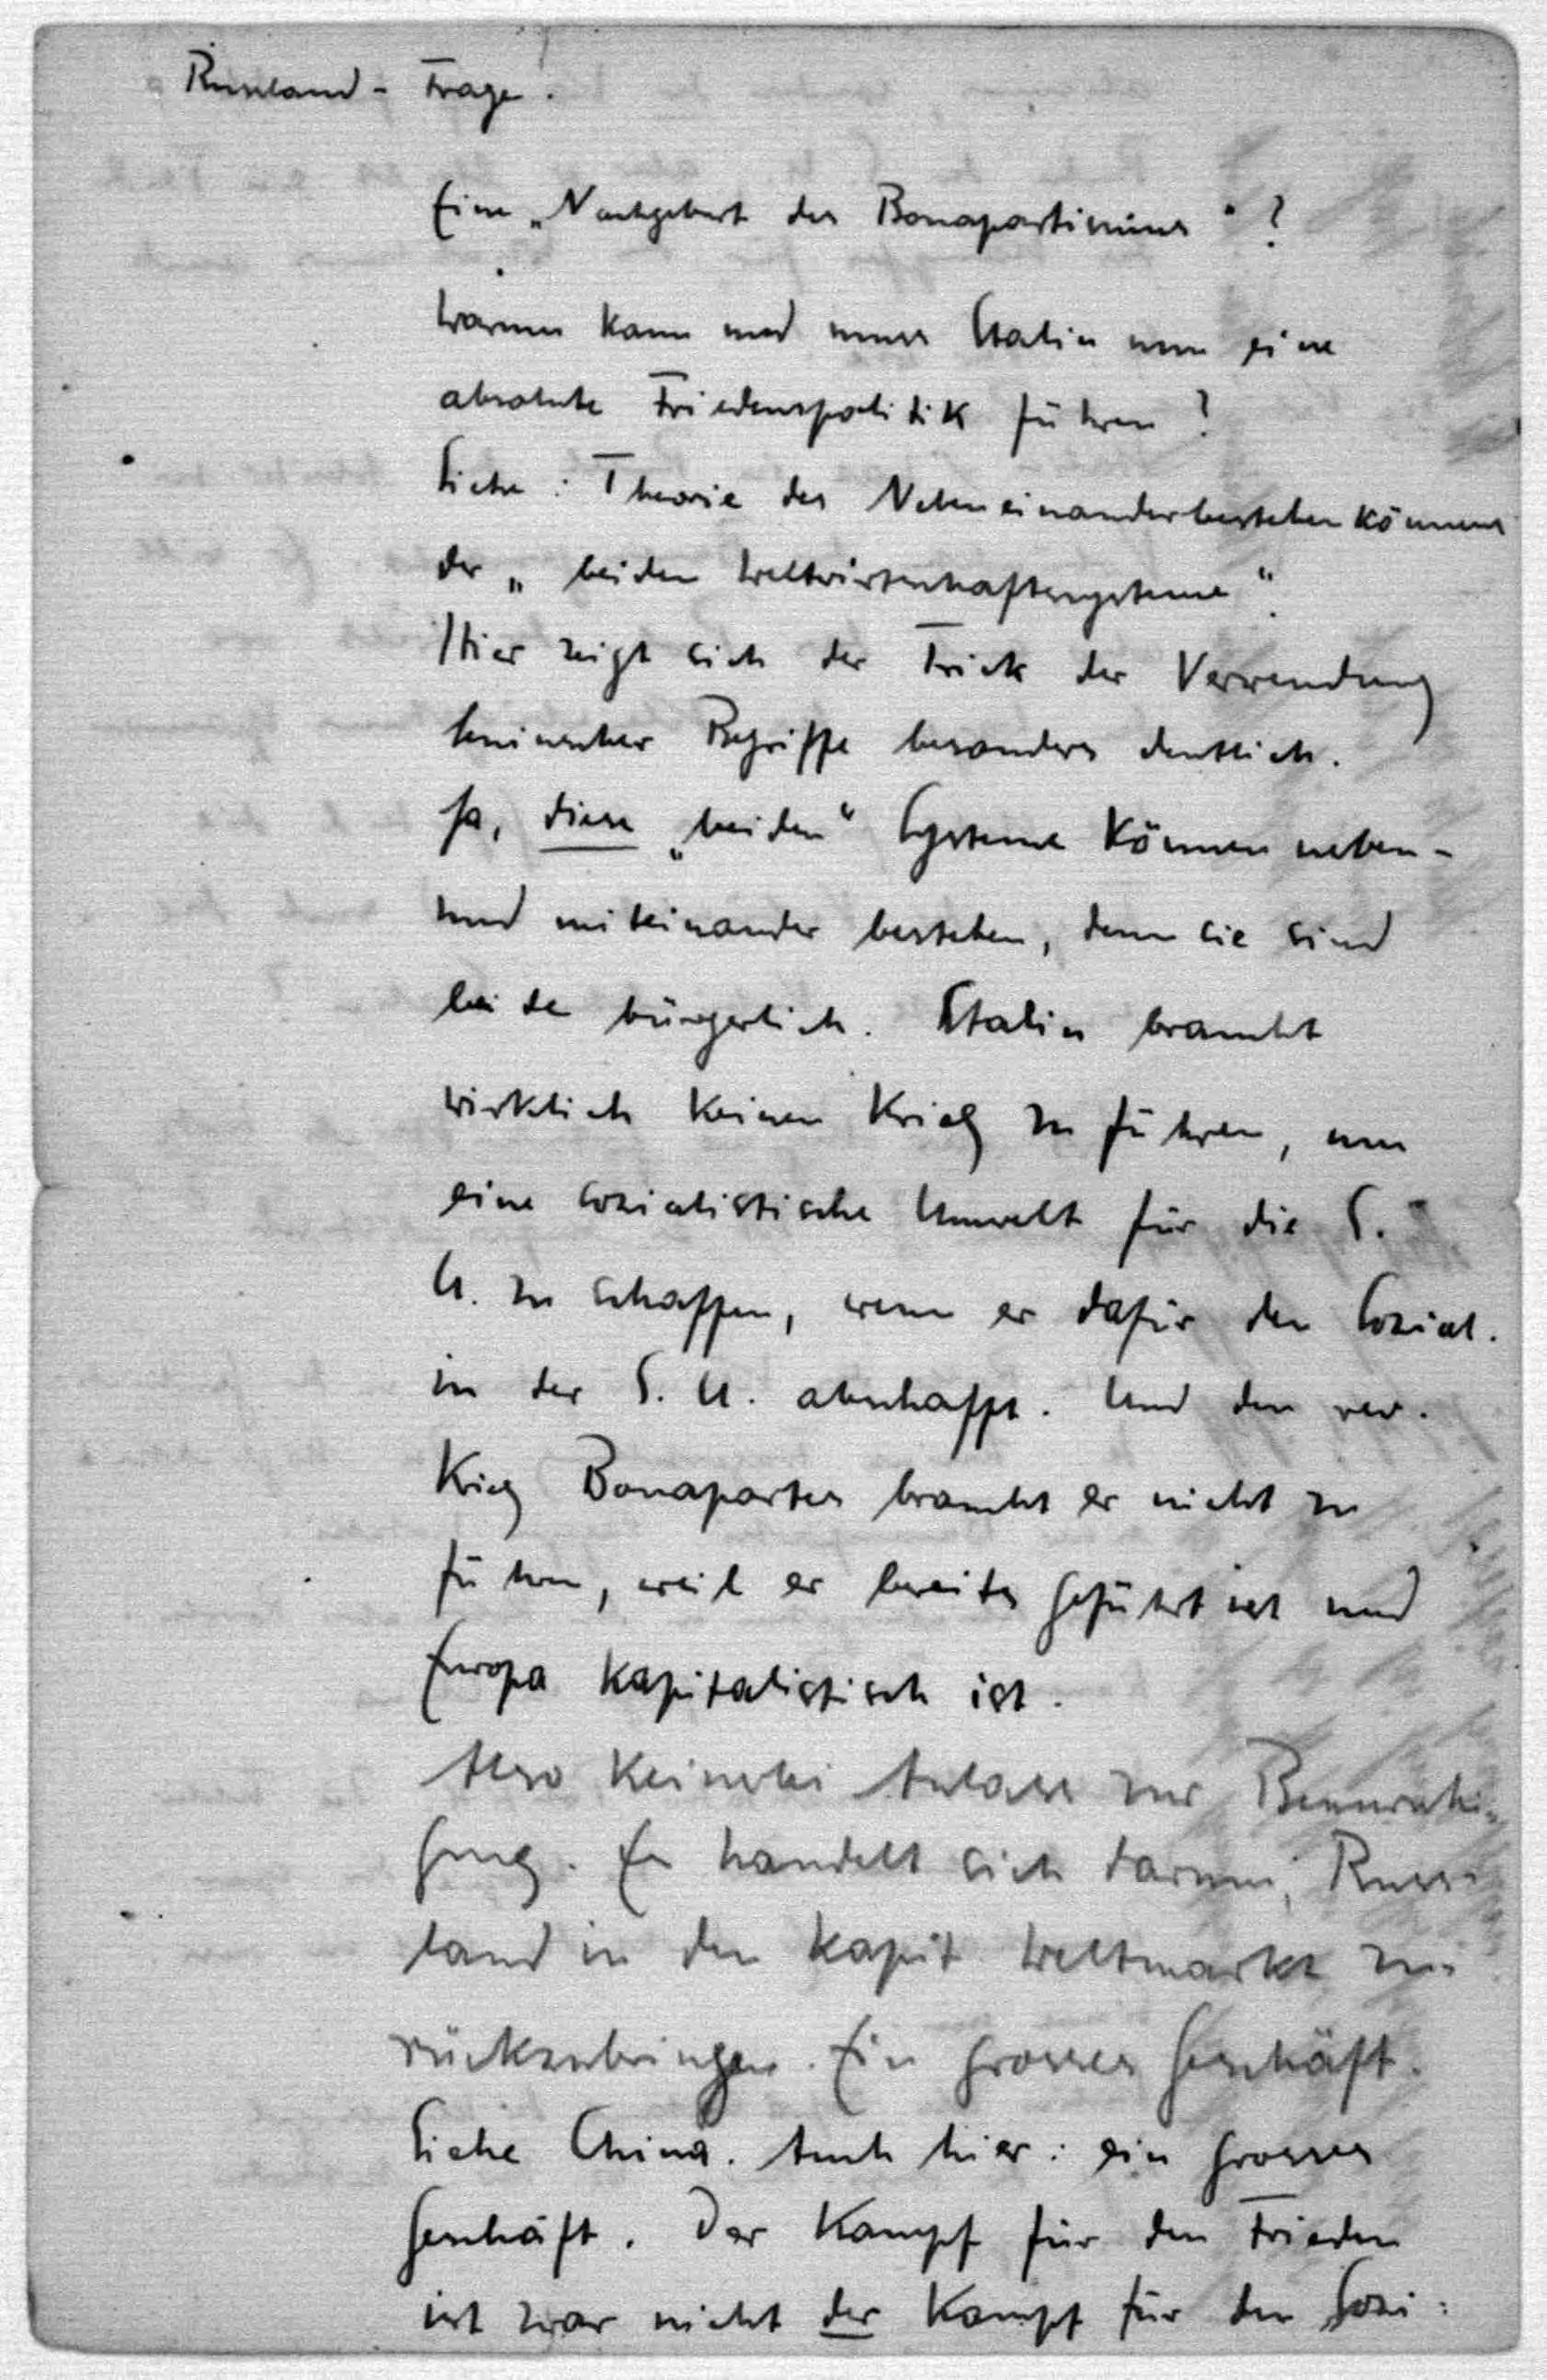 Russland - Frage.
Eine „Nachgeburt des Bonapartismus“?
Warum kann und muss Stalin nun eine
absolute Friedenspolitik führen?
Siehe: Theorie des Nebeneinanderbestehenkönnens
der „beiden Weltwirtschaftssysteme“.
Hier zeigt sich der Trick der Verwendung
leninscher Begriffe besonders deutlich.
Ja, diese „beiden“ Systeme können neben-
und miteinander bestehen, denn sie sind
beide bürgerlich. Stalin braucht
wirklich keinen Krieg zu führen, um
eine sozialistische Umwelt für die S.
U. zu schaffen, wenn er dafür den Sozial.
in der S. U. abschafft. Und den rev.
Krieg Bonapartes braucht er nicht zu
führen, weil er bereits geführt ist und
Europa kapitalistisch ist.
Also keinerlei Anlass zur Beunruhi-
gung. Es handelt sich darum, Russ-
land in den kapit. Weltmarkt zu-
rückzubringen. Ein grosses Geschäft.
Siehe China. Auch hier: ein grosses
Geschäft. Der Kampf für den Frieden
ist zwar nicht der Kampf für den Sozi-